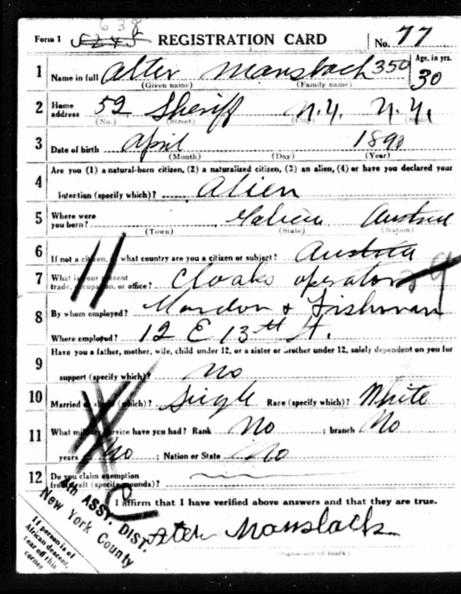 638
Form 1 REGISTRATION CARD No. 77
1 Name in full Alter Mansbach 350 Age, in yrs. 30
(Given name) (Family name)
2 Home address 52 Sheriff N.Y. N.Y.
(No.) (Street)
3 Date of birth April 1890
(Month) (Day) (Year)
4 Are you (1) a natural-born citizen, (2) a naturalized citizen, (3) an alien, (4) or have you declared your
intention (specify which)? Alien
5 Where were you born? Galicia Austria
(Town) (State) (Nation)
6 If not a citizen, of what country are you a citizen or subject? Austria
7 What is your present trade, occupation, or office? Cloaks operator 29
8 By whom employed? Mordon & Fishman
Where employed? 12 E 13th St.
9 Have you a father, mother, wife, child under 12, or a sister or brother under 12, solely dependent on you for
support (specify which)? No
10 Married or single (which)? Single Race (specify which)? White
11 What military service have you had? Rank No ; branch No
years No ; Nation or State No
12 Do you claim exemption from draft (specify grounds)?
I affirm that I have verified above answers and that they are true.
Alter Mansbach
(Signature or mark)
8th ASST. DIST.
New York County
If person is of African descent, tear off this corner.